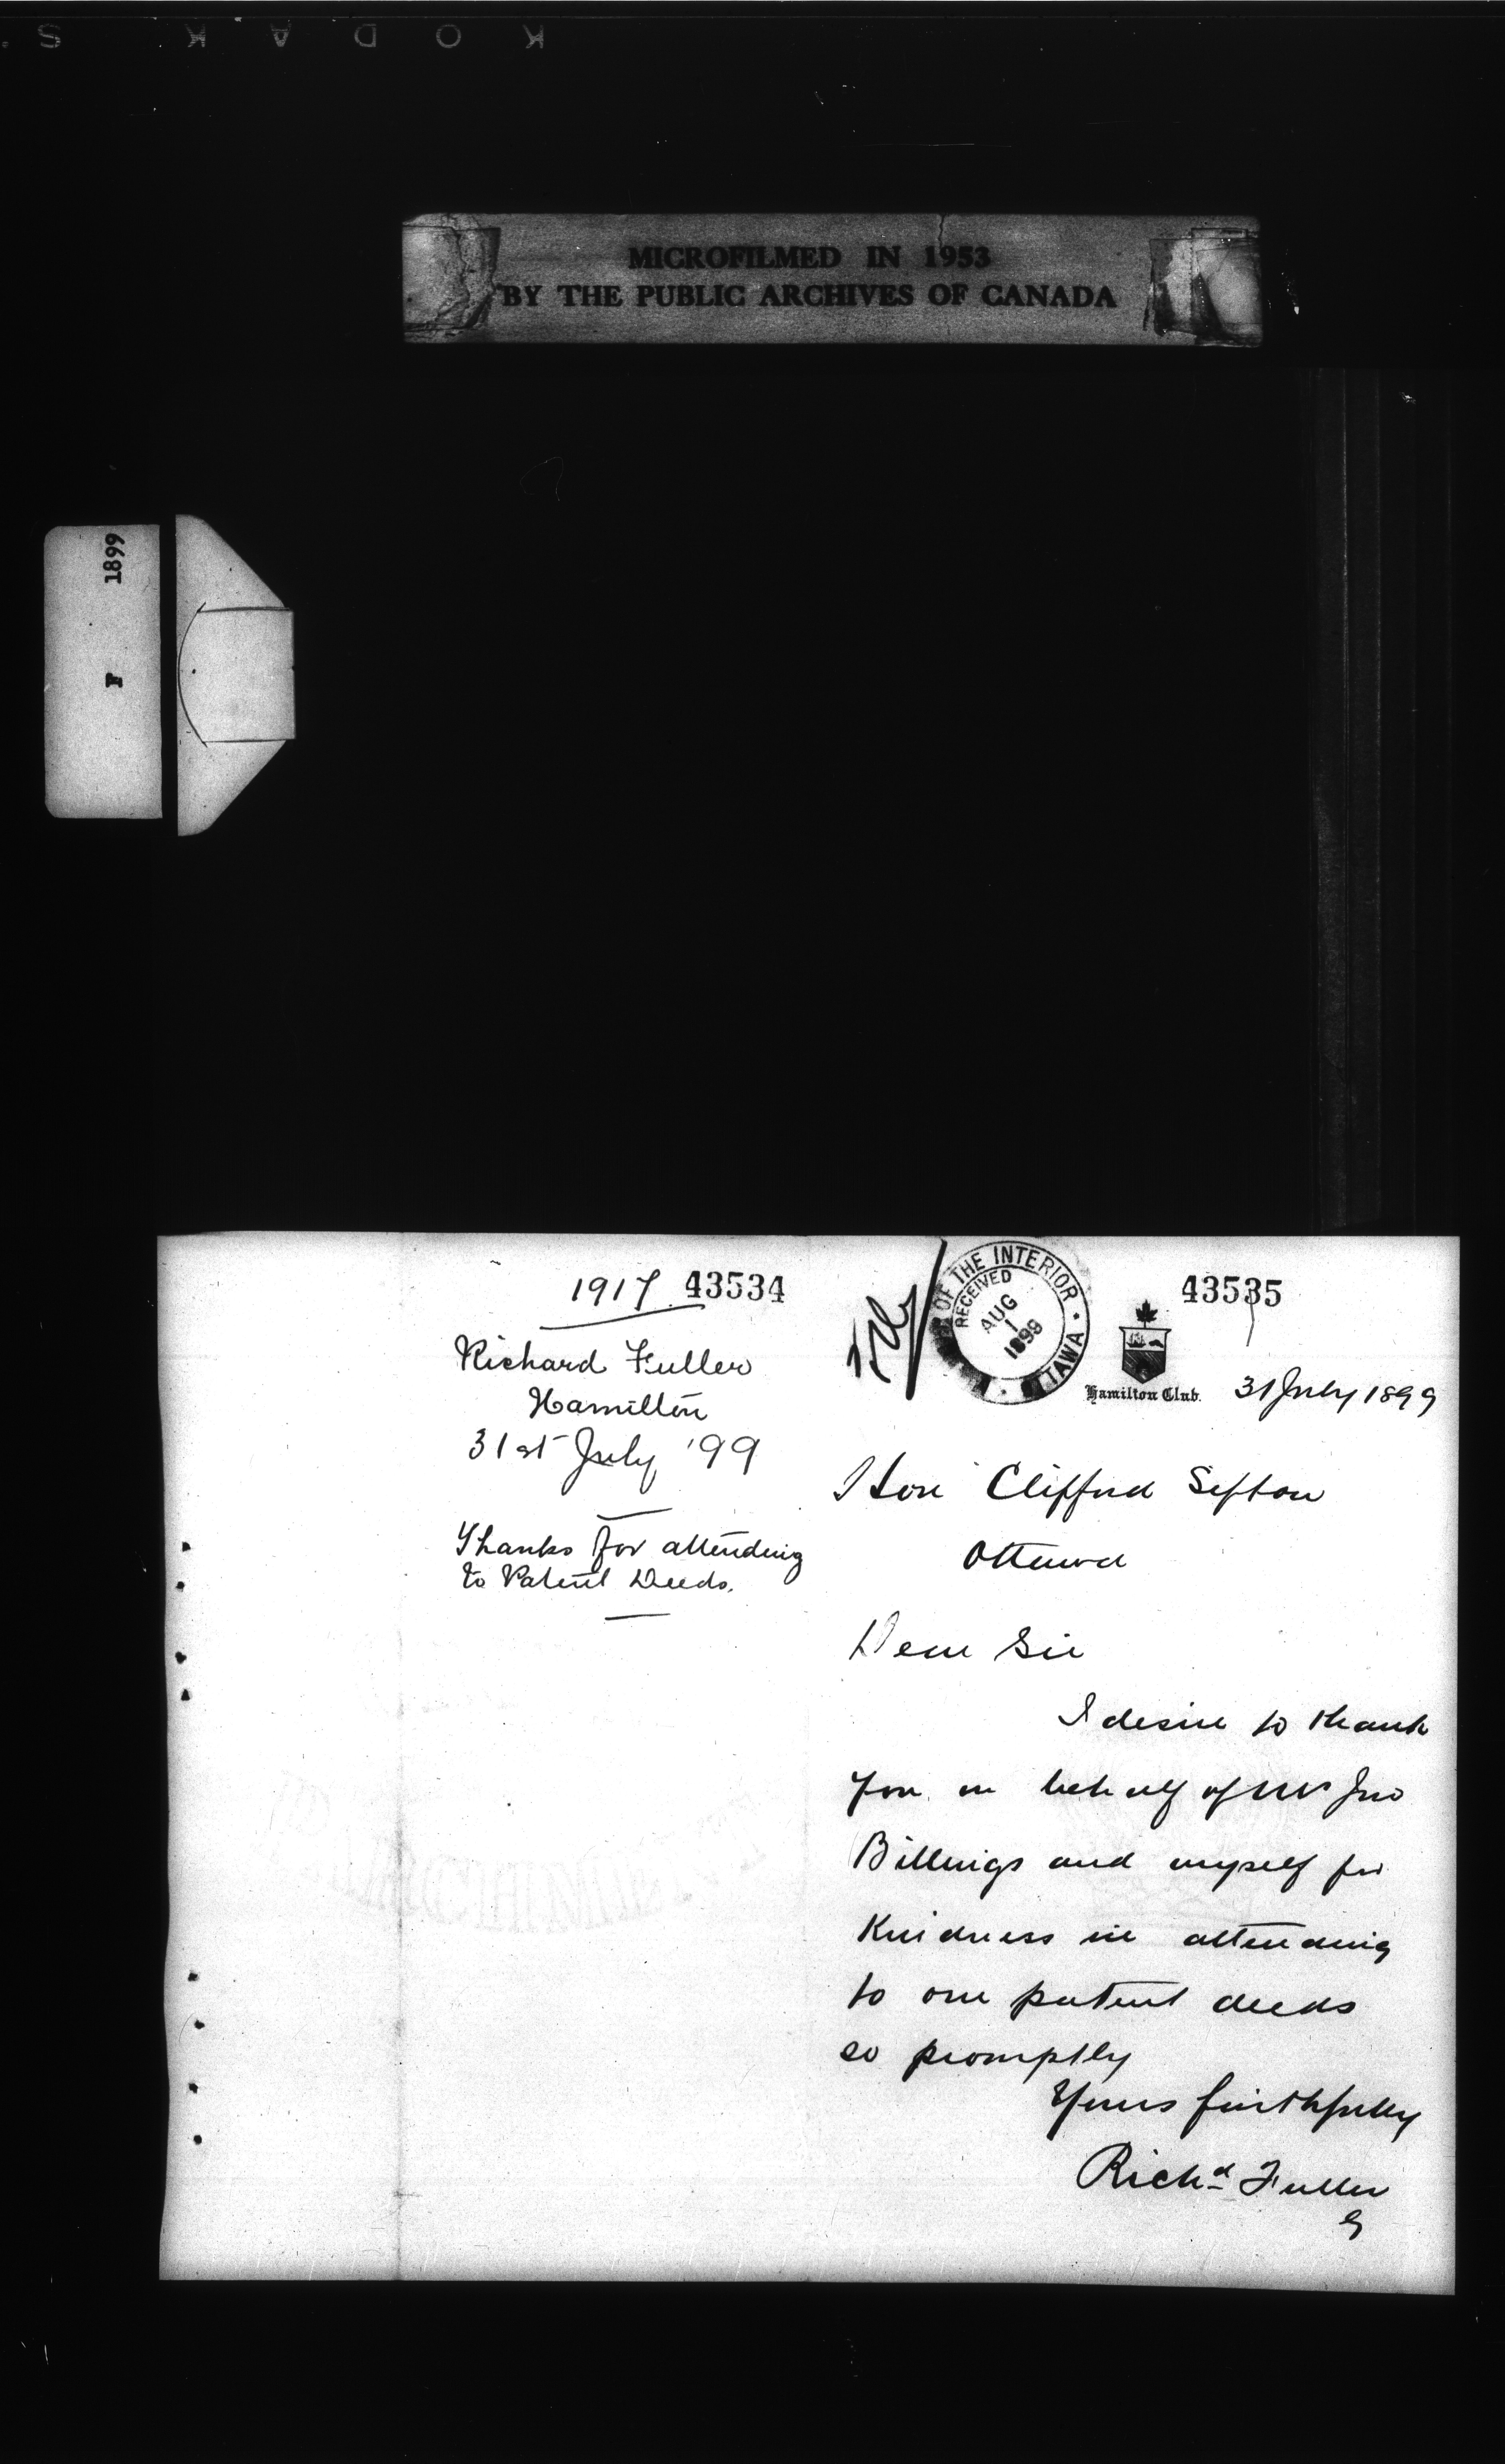 KODAK S
MICROFILMED IN 1953
BY THE PUBLIC ARCHIVES OF CANADA
F 1899
1917 43534
Richard Fuller
Hamilton
31st July '99
Thanks for attending
to Patent Deeds.
OF THE INTERIOR
RECEIVED
AUG
1
1899
OTTAWA
43535
Hamilton Club. 31 July 1899
Hon Clifford Sifton
Ottawa
Dear Sir
I desire to thank
you on behalf of Mr Jno
Billings and myself for
Kindness in attending
to our patent deeds
so promptly
Yours faithfully
Richd Fuller